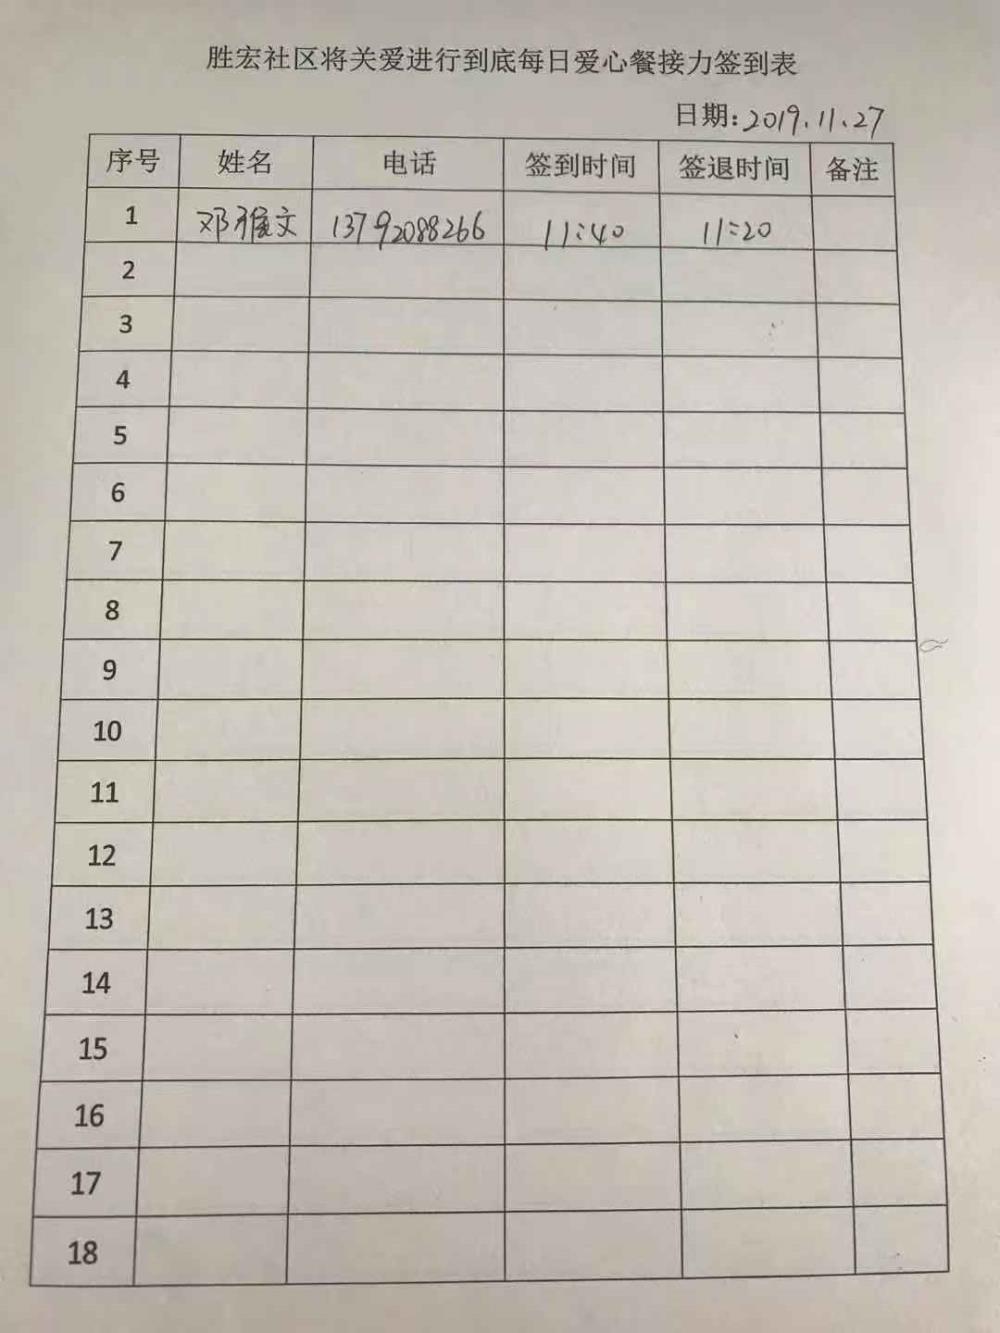 胜宏社区将关爱进行到底每日爱心餐接力签到表
日期:2019.11.27
序号 姓名 电话 签到时间 签退时间 备注
1 邓雅文 13792088266 11:40 11:20
2
3
4
5
6
7
8
9
10
11
12
13
14
15
16
17
18